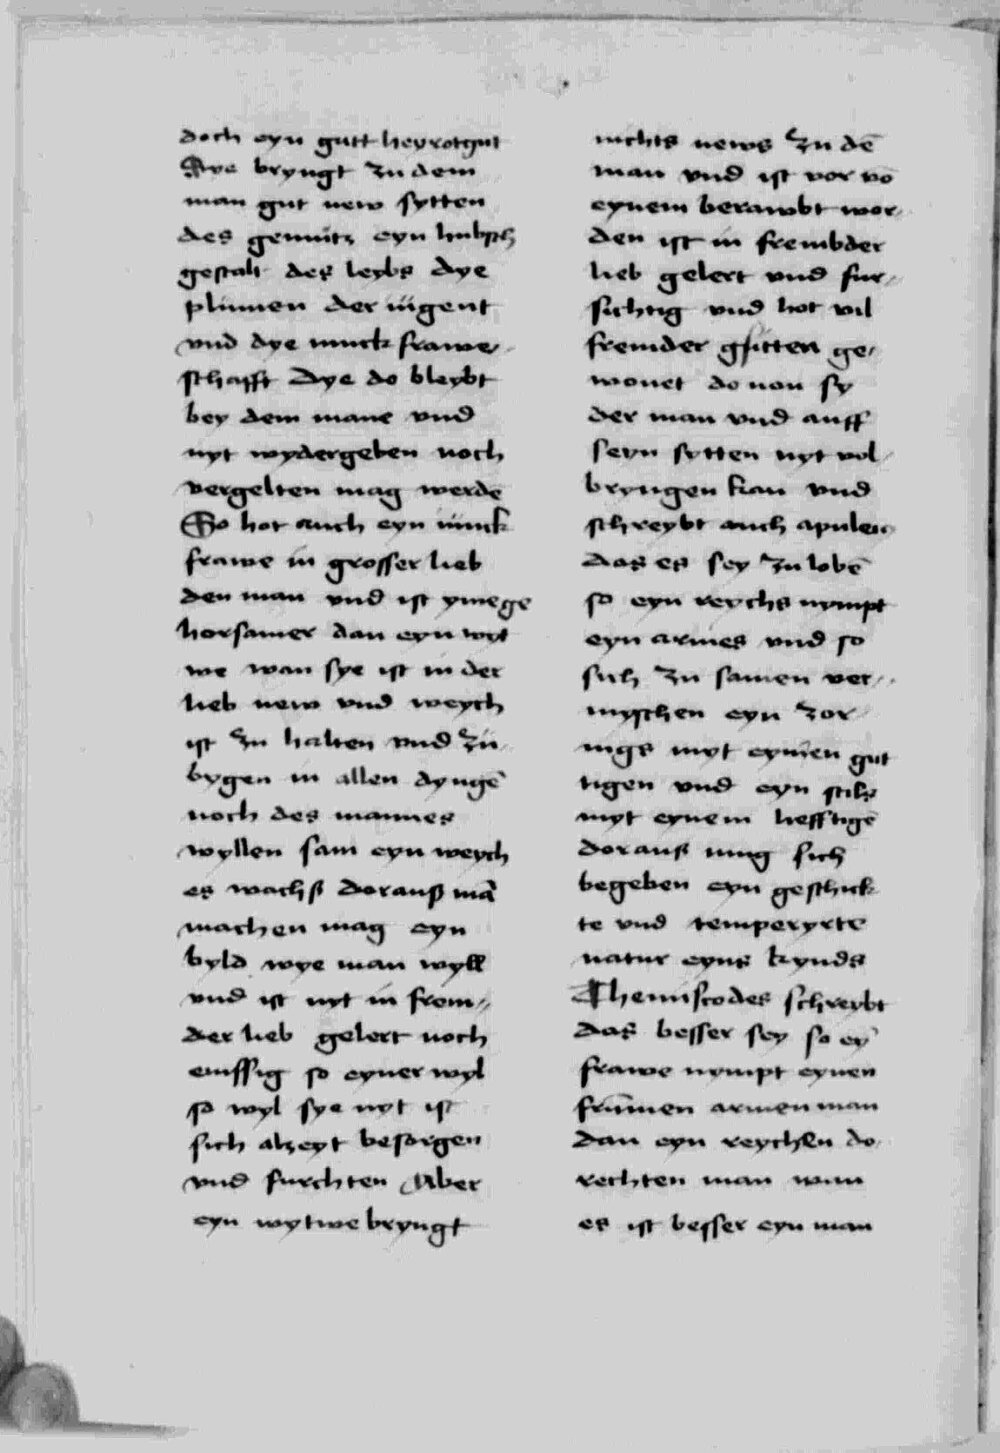 doch eyn gutt heyrotgut
Sye bryngt zu dem
man gut new sytten
des gemütz eyn hubsch
gestalt des leybs dye
plůmen der iůgent
vnd dye iunck frawe„
schafft Dye do bleybt
bey dem mane vnd
nyt wydergeben noch
vergelten mag werdē
So hot auch eyn iunck
frawe in grosser lieb
den man vnd ist ym ege
horsamer dan eyn wyt
we wan sye ist in der
lieb new vnd weych
ist zu halten vnd zu
bygen in allen dyngē
noch des mannes
wyllen sam eyn weych
es wachß dorauß mā
machen mag eyn
byld wye man wyll
vnd ist nyt in frem„
der lieb gelert noch
emssig so eyner wyl
so wyl sye nyt ist
sich alzeyt besorgen
vnd furchten Aber
eyn wytwe bryngt
nichts news zu dē
man vnd ist vor vō
eynem berawbt wor„
den ist in frembder
lieb gelert vnd fur„
sichtig vnd hot vil
fremder sitten ge„
wonet do von sy
der man vnd auff
seyn sytten nyt vol„
bryngen kan vnd
schreybt auch apuleius
das es sey zu lobē
so eyn reychs nympt
eyn armes vnd so
sich zu samen ver„
myschen eyn zor„
nigs myt eymen gut
tigen vnd eyn stils
myt eynem hefftigē
dorauß mug sich
begeben eyn geschick
te vnd temperyrte
natur eyns kynds
Themiscodes schreybt
das besser sey so eȳ
frawe nympt eynen
frūmen armen man
dan eyn reychen do„
rechten man wan
es ist besser eyn man